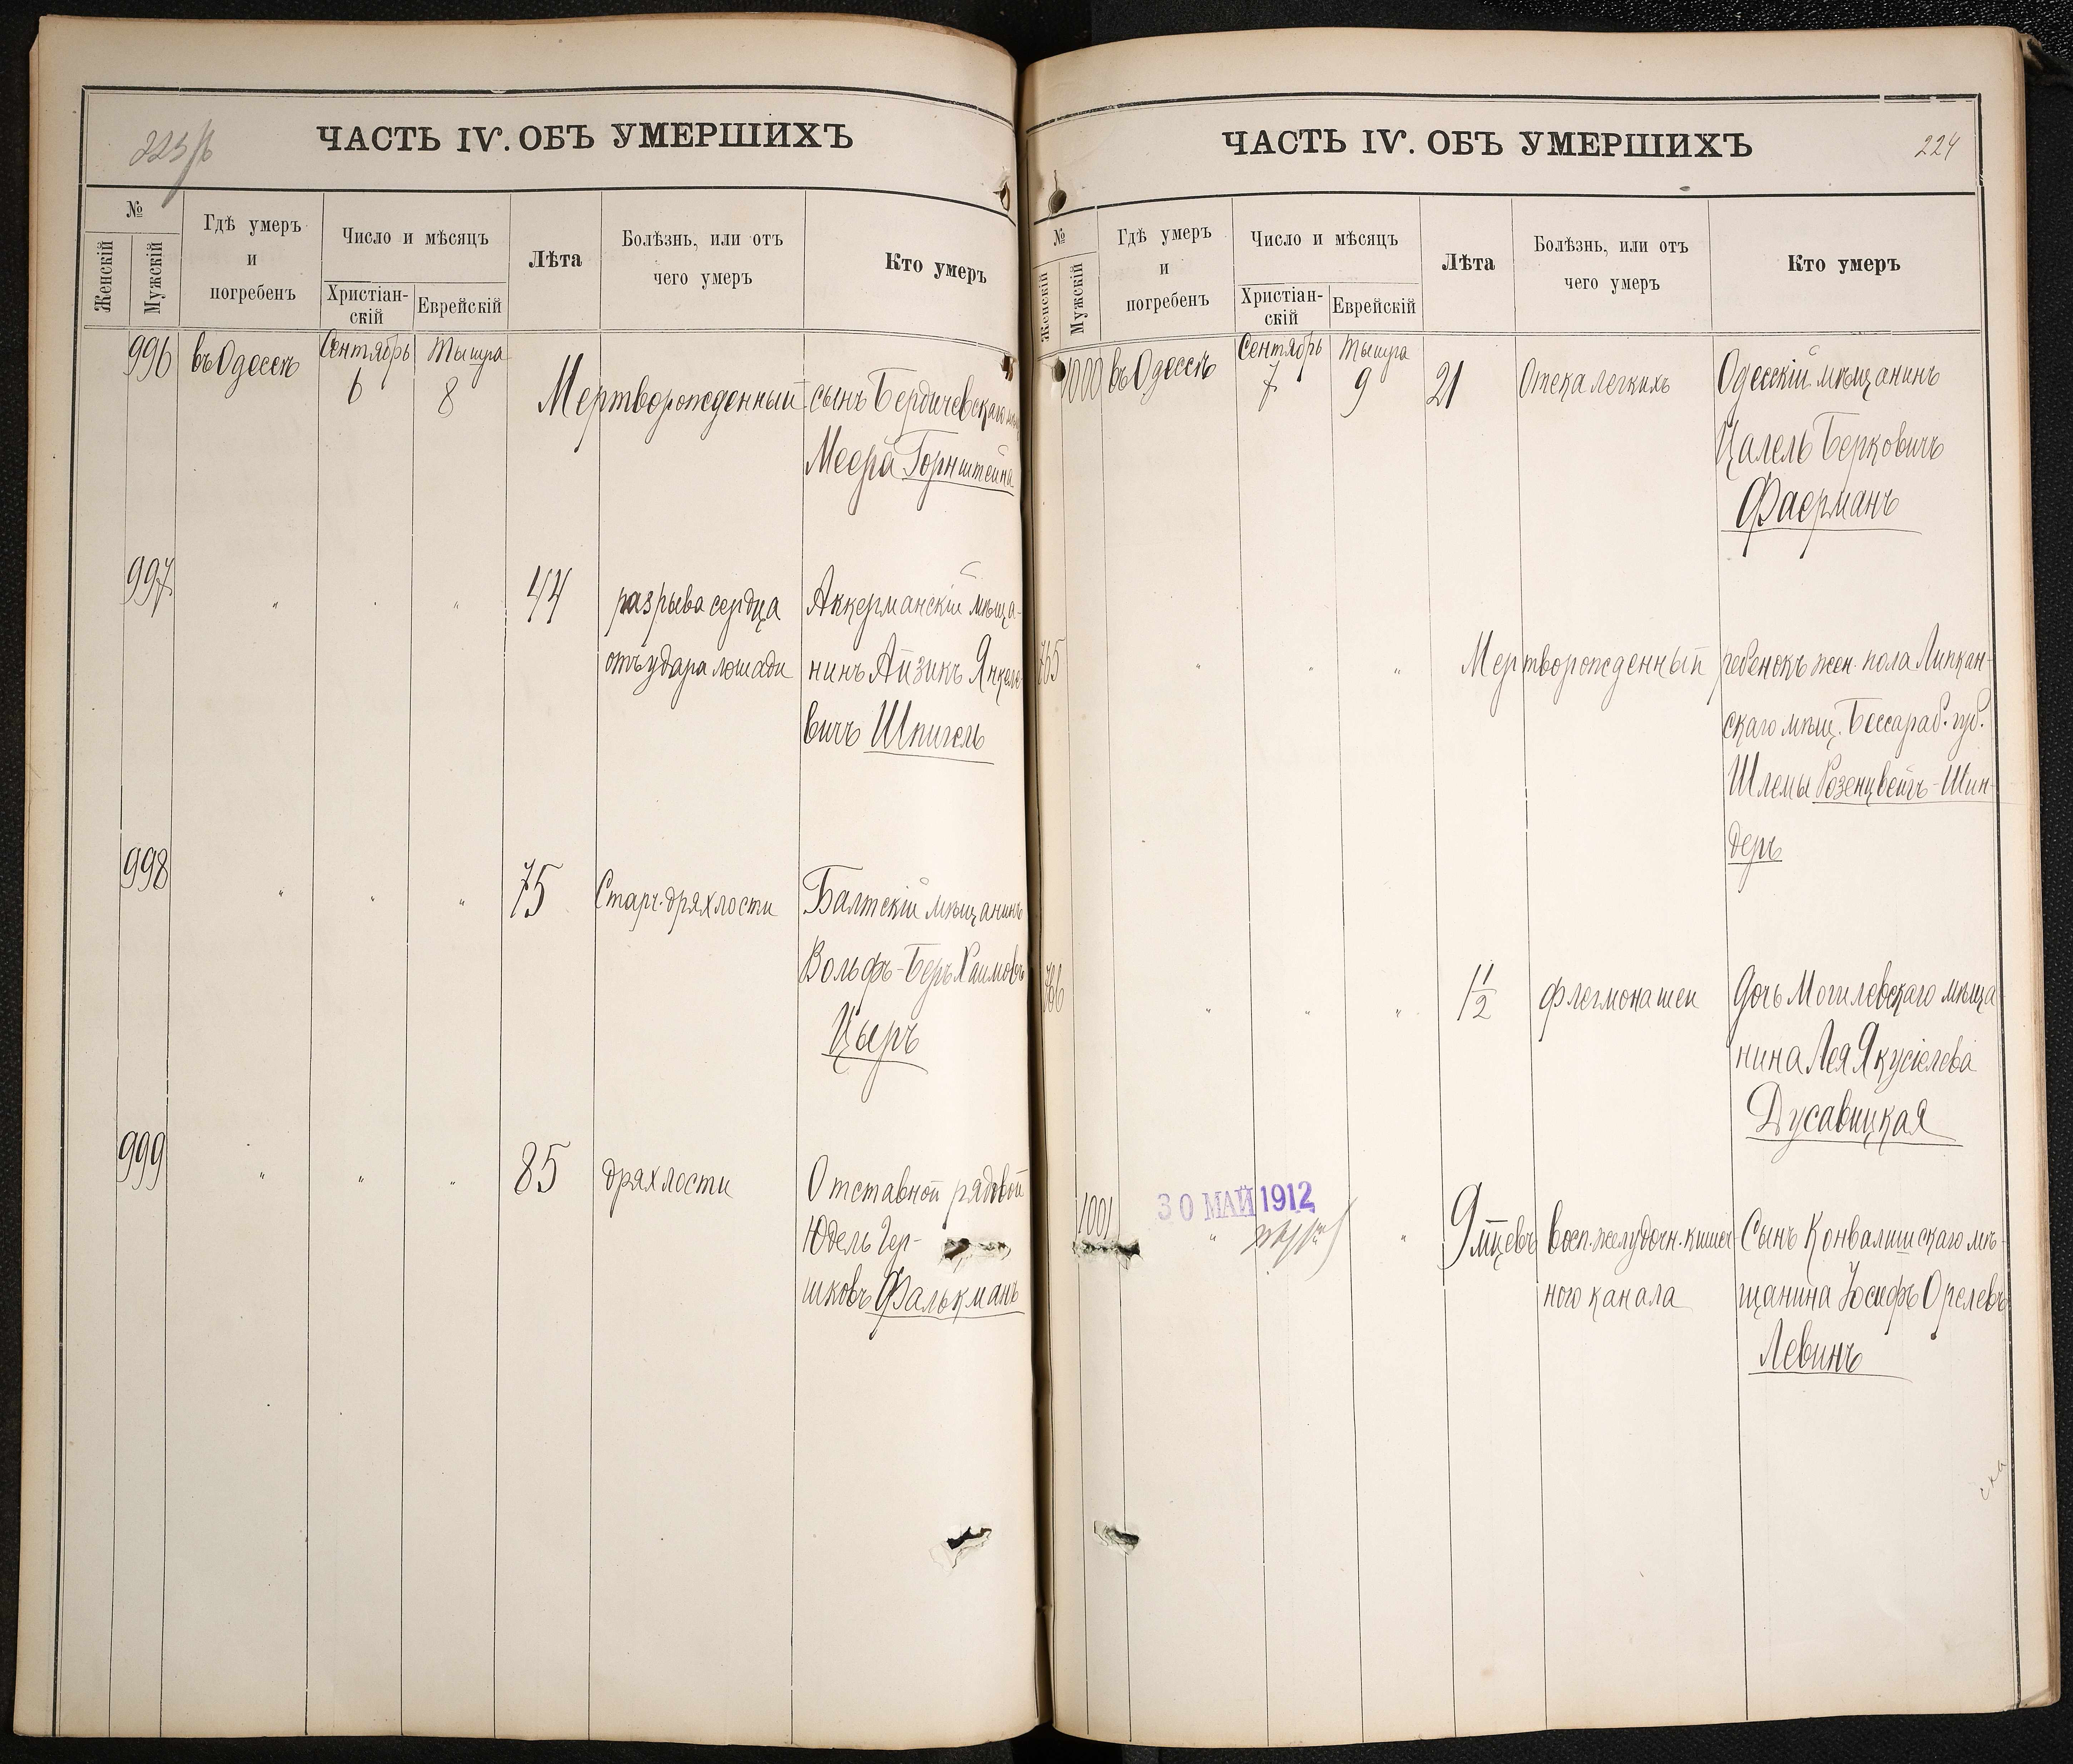 223/б
ЧАСТЬ IV. ОБЪ УМЕРШИХЪ
№
Женскій
Мужскій
Гдѣ умеръ
и
погребенъ
Число и мѣсяцъ
Христіан-
скій
Еврейскій
Лѣта
Болѣзнь, или отъ
чего умеръ
Кто умеръ
996 въ Одессѣ Сентябрь Тышра
6 8 Мертворожденный сынъ Бердичевскаго
Меера Горнштейна
997 " " " 44 разрыва сердца Аккерманскій мѣща-
отъ удара лошади нинъ Айзикъ Янкеле-
вичъ Шпигель
998 " " " 75 Старч. дряхлости Балтскій мѣщанинъ
Вольфъ-Беръ Хаимовъ
Цыръ
999 " " " 85 дряхлости Отставной рядовой
Юдель Гер-
шковъ Фалькманъ
ЧАСТЬ IV. ОБЪ УМЕРШИХЪ
224
№
Женскій
Мужскій
Гдѣ умеръ
и
погребенъ
Число и мѣсяцъ
Христіан-
скій
Еврейскій
Лѣта
Болѣзнь, или отъ
чего умеръ
Кто умеръ
1000 въ Одессѣ Сентябрь Тышра
7 9 21 Отека легкихъ Одесскій мѣщанинъ
Цалель Берковичъ
Фаерманъ
765 " " " Мертворожденный ребенокъ жен. пола Липкан-
скаго мѣщ. Бессараб. губ.
Шлемы Розенцвейгъ-Шин-
деръ
766 " " " 1 1/2 флегмона шеи Дочь Могилевскаго мѣща-
нина Лея Якусіелева
Дусавицкая
30 МАЙ 1912
1001 " " 9 мцевъ восп. желудочн. кишеч Сынъ Конвалишскаго мѣ-
ного канала щанина Іосифъ Орелевъ
Левинъ